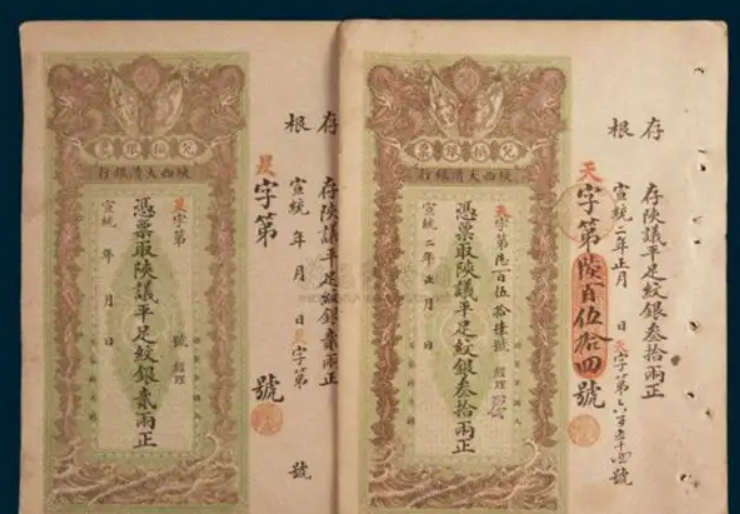 存根
存陝議平足紋銀叁拾兩正
宣統二年正月 日 天字第六百五十四號
天字第陸百伍拾四號
兌換銀票
陝西大清銀行
天字第陸百伍拾肆號 經理
憑票取陝議平足紋銀叁拾兩正
宣統二年正月 日
存根
存陝議平足紋銀貳兩正
宣統 年 月 日 昃字第 號
昃字第 號
兌換銀票
陝西大清銀行
昃字第 號 經理
憑票取陝議平足紋銀貳兩正
宣統 年 月 日